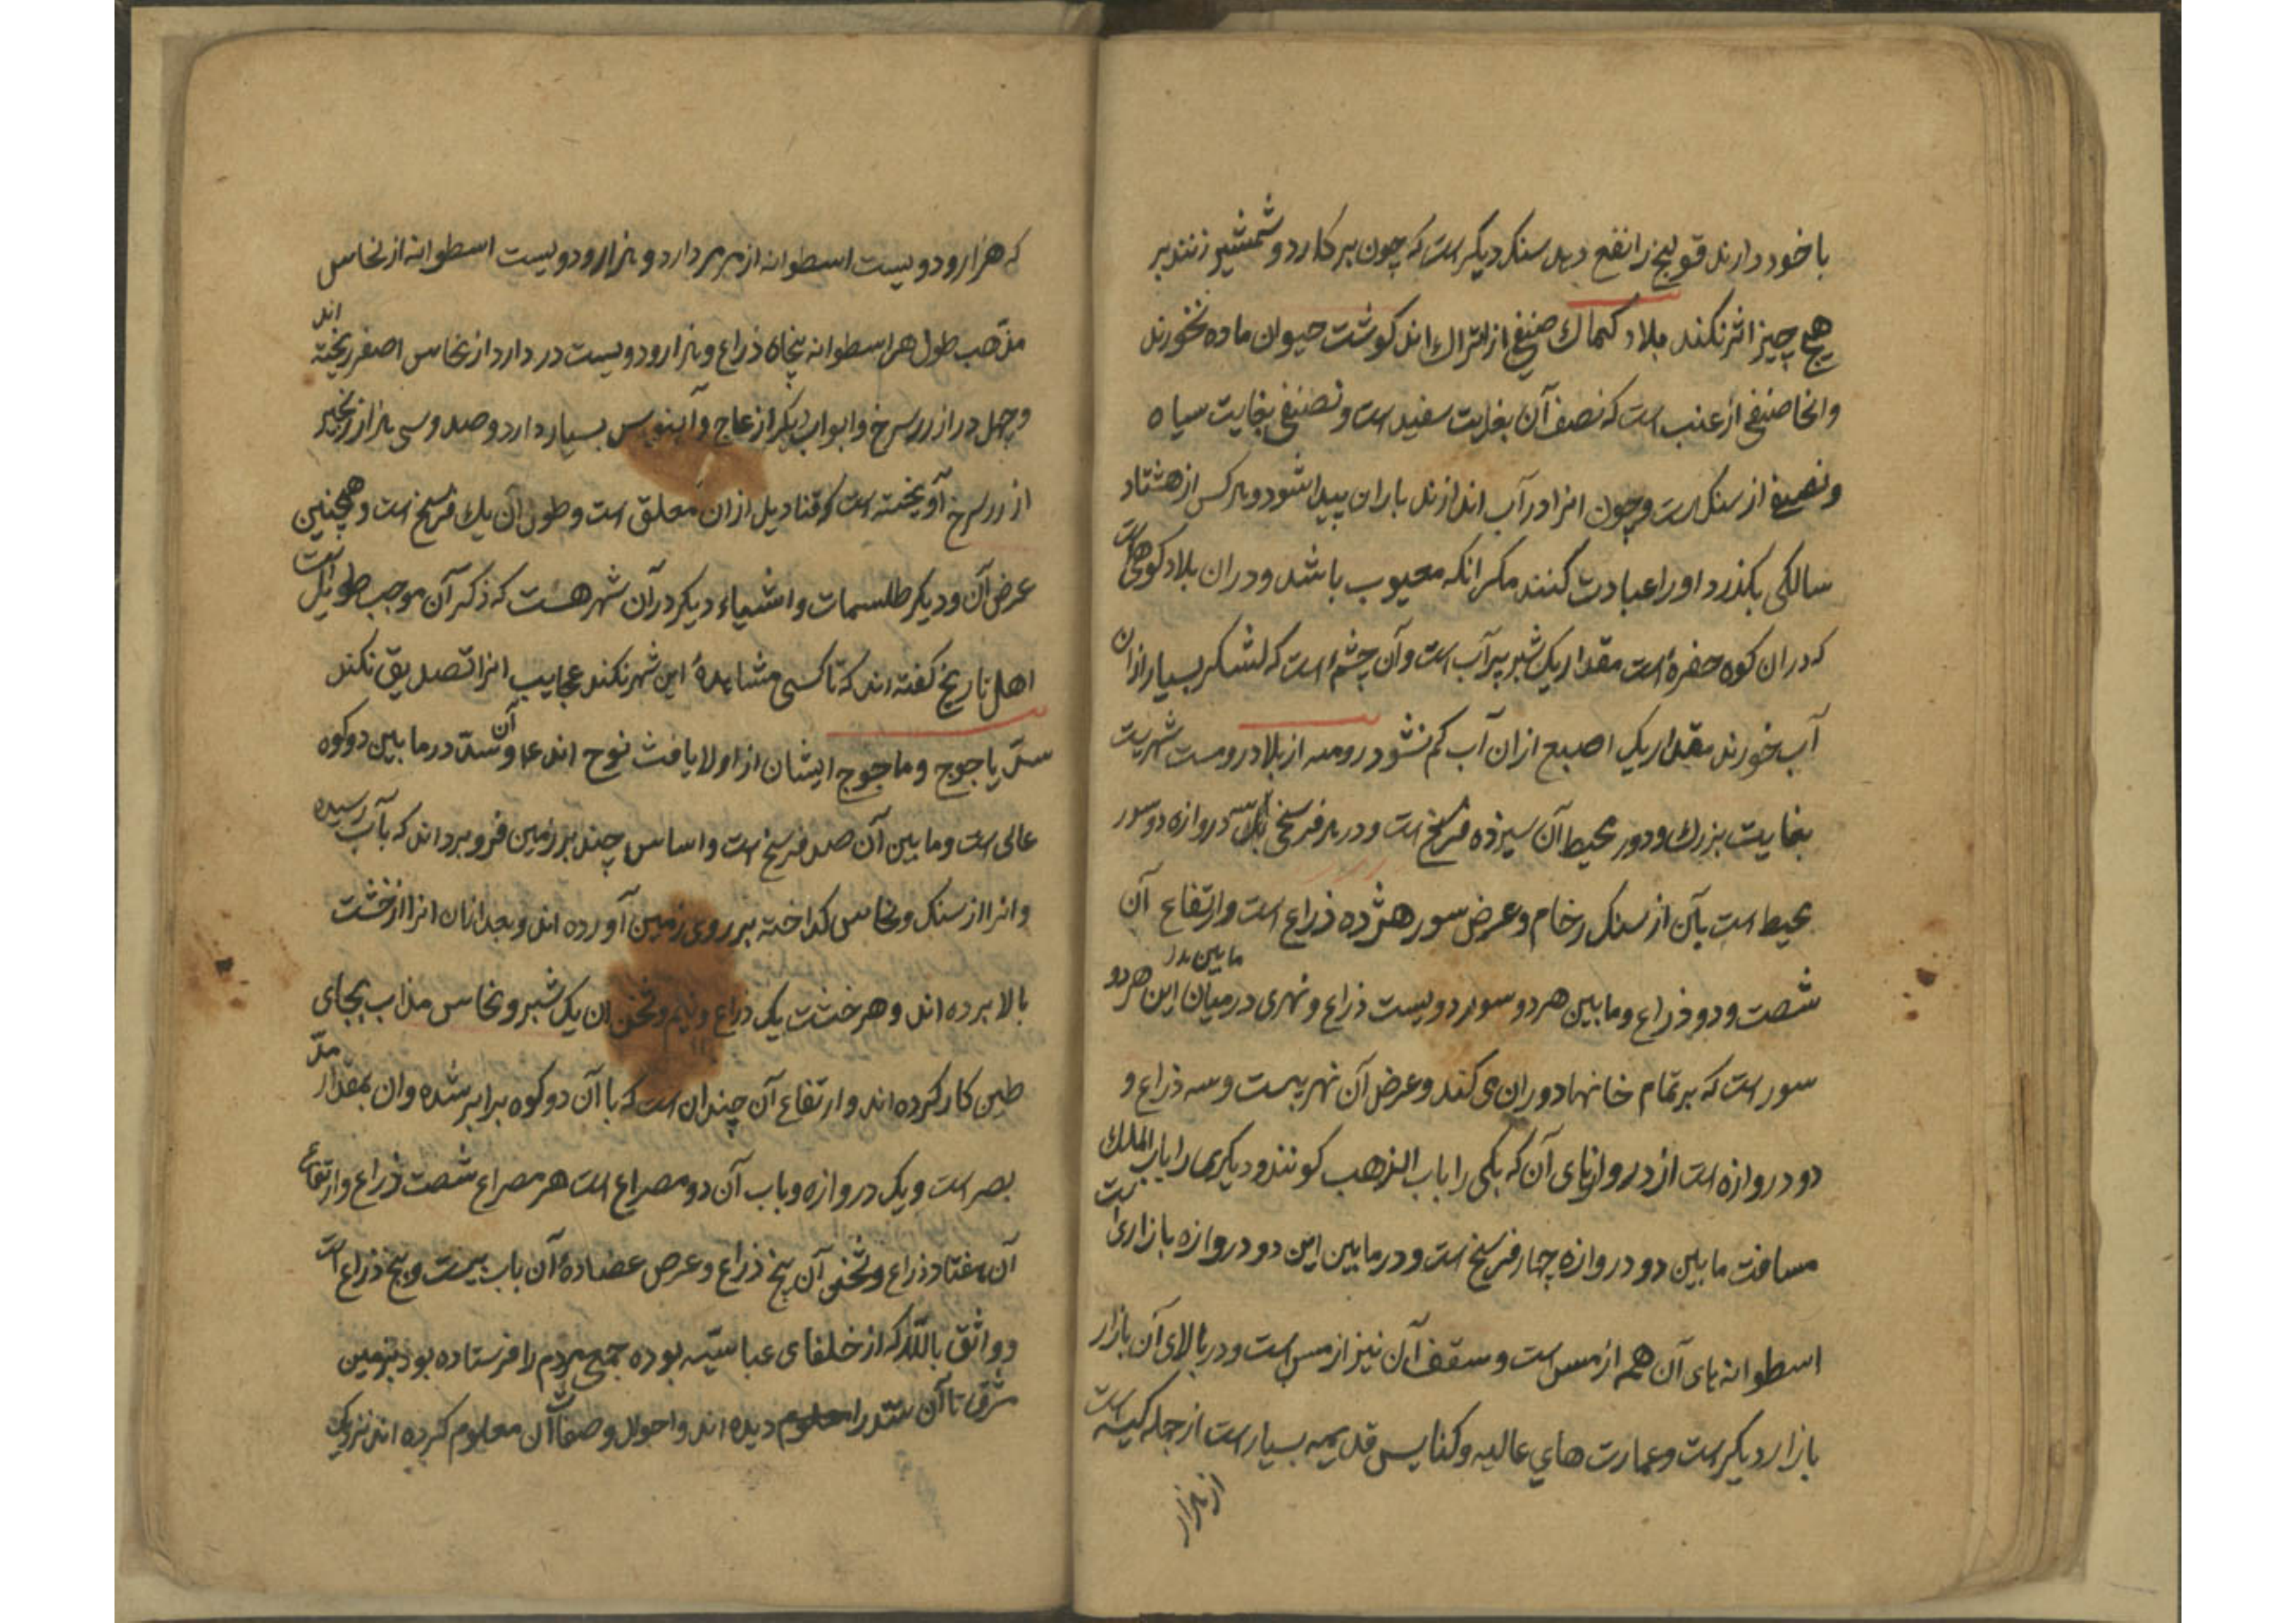 با خود دارند قولنج را نفع دهد سنک دیکر است که چون بر کارد و شمشیر زنند بر
هیچ چیز اثر نکند بلاد کیماک صنفی از اتراک اند کوشت حیوان ماده نخورند
وانجا صنفی از عنب است که نصف آن بغایت سفید است و نصفی بغایت سیاه
و نصفی از سنک است و چون انرا در آب اندازند باران پیدا شود و هر کس از هشتاد
سالکی بکذرد او را عبادت کنند مکر انکه معیوب باشد و دران بلاد کوهی است
که دران کوه حفره است مقدار یک شبر پر آب است و آن چشمه است که لشکر بسیار ازان
آب خورند مقدار یک اصبع ازان آب کم نشود رومیه از بلاد روم است شهریست
بغایت بزرک و دور محیط آن سیزده فرسخ است و در هر فرسخی دروازه دو سور
محیط است بآن از سنک رخام و عرض سور هژده ذراع است و ارتفاع آن
شصت و دو ذراع و ما بین هر دو سور دویست ذراع و نهری در میان این هر دو
ما بین
سور است که بر تمام خانها دوران می کند و عرض آن نهر بیست و سه ذراع و
دو دروازه است از دروازهای آن که یکی را باب الذهب کویند و دیکری را باب الملک
مسافت ما بین دو دروازه چهار فرسخ است و در ما بین این دو دروازه بازاری است
اسطوانه های آن همه از مس است و سقف آن نیز از مس است و در بالای آن بازار
بازار دیکر است و عمارت های عالیه و کنایس قدیمه بسیار است از جمله کنیسه است
از هزار
که هزار و دویست اسطوانه از مرمر دارد و هزار و دویست اسطوانه از نحاس
مذهب طول هر اسطوانه پنجاه ذراع و هزار و دویست در دارد از نحاس اصفر ریخته اند
و چهل در از زر سرخ و ابواب دیکر از عاج و آبنوس بسیار دارد و صد و سی هزار زنجیر
از زر سرخ آویخته است که قنادیل ازان معلق است و طول آن یک فرسخ است و همچنین
عرض آن و دیکر طلسمات و اشیاء دیکر در آن شهر هست که ذکر آن موجب طویل است
اهل تاریخ کفته اند که تا کسی مشاهدهٔ این شهر نکند عجایب انرا تصدیق نکند
سدّ یاجوج و ماجوج ایشان از اولاد یافث نوح اند ع‍م و آن سدّ در ما بین دو کوه
عالی است و ما بین آن صد فرسخ است و اساس چند بر زمین فرو برداند که بآب رسیده
و انرا از سنک و نحاس کداخته بر روی زمین آورده اند و بعد ازان انرا از خشت
بالا برده اند و هر خشت یک ذراع و نیم و ثخن ان یک شبر و نحاس مذاب بجای
طین کار کرده اند و ارتفاع آن چندان است که با آن دو کوه برابر شده و ان بمقدار مدّ
بصر است و یک دروازه و باب آن دو مصراع است هر مصراع شصت ذراع و ارتفاع
آن هفتاد ذراع و ثخن آن پنج ذراع و عرض عضادهٔ آن باب بیست و پنج ذراع است
و واثق بالله که از خلفای عباسیّه بوده جمع مردم را فرستاده بود بزمین
مشرق تا آن سد را دیده اند و احوال و صفات آن معلوم کرده اند نزدیک